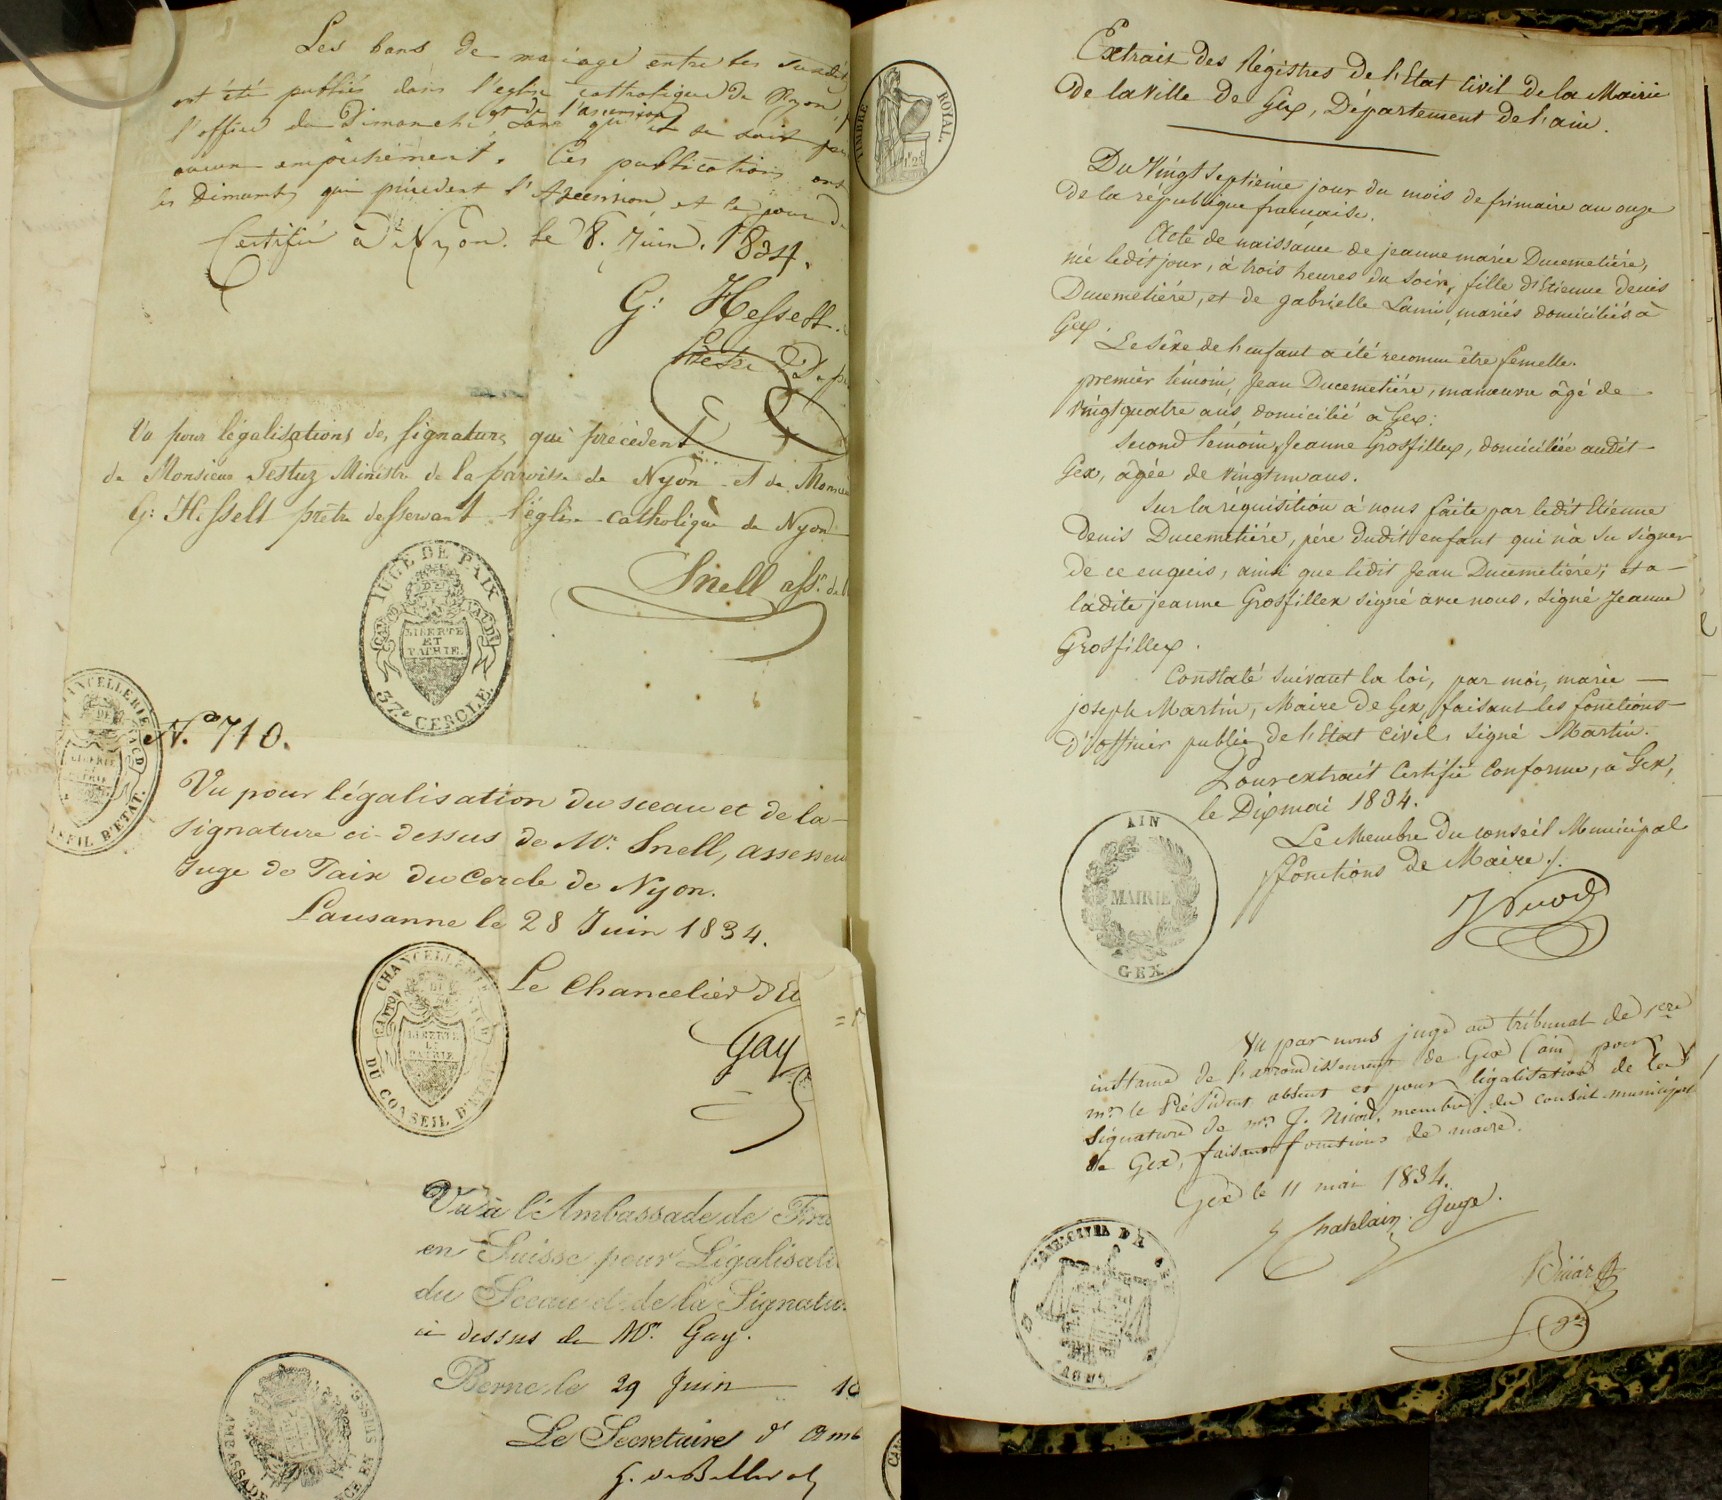 Les bans de mariage entre les susdit
ont été publiés dans l'eglise catholique de Nyon,
l'office du Dimanche et de l'ascension sans qu'il se soit
aucun empêchement. Ces publications ont
les Dimanches qui précèdent l'Ascension et le jour de
Certifié à Nyon. le 8. Juin. 1834.
G: Hesselt.
Prêtre D.
Vu pour légalisations des signatures qui précèdent
de Monsieur Testuz Ministre de la paroisse de Nyon et de Monsieu
G: Hesselt prêtre desservant l'église catholique de Nyon
Snell ass.r de
JUGE DE PAIX
CTON DE VAUD
LIBERTE
ET
PATRIE.
37e CERCLE.
CHANCELLERIE
DU CONSEIL D'ETAT.
N.o 710.
Vu pour légalisation du sceau et de la
signature ci-dessus de Mr. Snell, assesseu
Juge de Paix du Cercle de Nyon.
Lausanne le 28 Juin 1834.
Le Chancelier d'Et
Gay
CHANCELLERIE
CANTON DE VAUD
LIBERTE
ET
PATRIE
DU CONSEIL D'ETAT
Vu à l'Ambassade de Fra
en Suisse pour Légalisati
du Sceau et de la Signatu
ci dessus de Mr. Gay.
Berne le 29 Juin 18
Le Secretaire d'Amb
AMBASSADE
TIMBRE ROYAL
Extrait des Régistres de l'Etat Civil de la Mairie
de la Ville de Gex, Département de l'ain.
Du Vingt septieme jour du mois de frimaire an onze
de la république française.
Acte de naissance de jeanne marie Ducemetiére,
née ledit jour, à trois heures du soir, fille d'Etienne denis
Ducemetiére, et de gabrielle Lami, mariés domiciliés à
Gex.
Le sexe de l'enfant a été reconnu être femelle.
premier témoin, Jean Ducemetiére, manœuvre âgé de
vingt quatre ans domicilié a Gex;
second témoin, Jeanne Grosfillex, domiciliée audit
Gex, âgée de vingt un ans.
Sur la réquisition à nous faite par ledit Etienne
Denis Ducemetiére, père dudit enfant qui n'a su signer
de ce enquis, ainsi que ledit Jean Ducemetiére; et a
ladite jeanne Grosfillex signé avec nous. signé Jeanne
Grosfillex.
Constaté suivant la loi, par moi, marie
joseph Martin, Maire de Gex, faisant les fonctions
d'officier public de l'Etat civil. signé Martin.
Pour extrait Certifié Conforme, à Gex,
le Dix mai 1834.
Le Membre du conseil Municipal
ffonctions de Maire./.
J Nicod
AIN
MAIRIE
GEX
Vu par nous juge au tribunal de 1ere
instance de l'arrondissement de Gex (ain) pour
mr. le Président absent et pour légalisation de la
signature de mr. J. Nicod, membre du conseil municipal
de Gex, faisant fonctions de maire.
Gex le 11 mai 1834.
Chatelain. Juge.